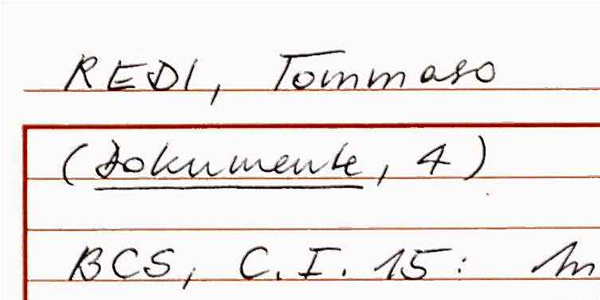 REDI, Tommaso
(Dokumente, 4)
BCS, C.I. 15: